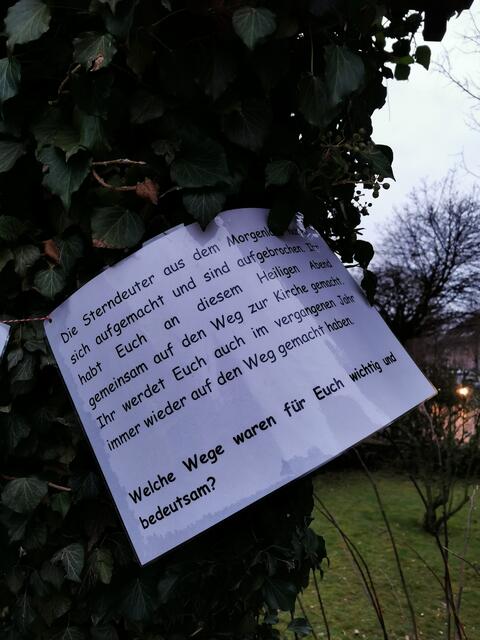 Die Sterndeuter aus dem
sich aufgemacht und sind aufgebrochen. Ihr
habt Euch an diesem Heiligen Abend
gemeinsam auf den Weg zur Kirche gemacht.
Ihr werdet Euch auch im vergangenen Jahr
immer wieder auf den Weg gemacht haben.
Welche Wege waren für Euch wichtig und
bedeutsam?